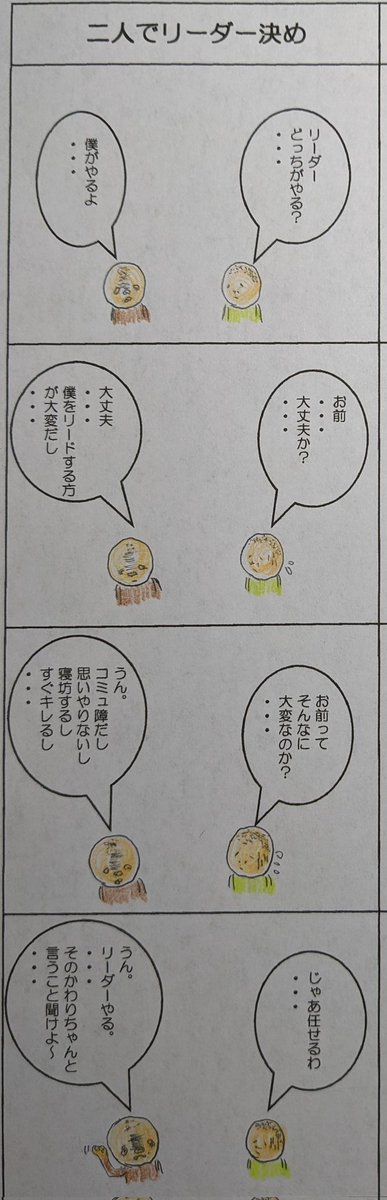 二人でリーダー決め
リーダー
どっちがやる?
・・・
僕がやるよ
・・・
お前
・・・
大丈夫か?
・・・
大丈夫
・・・
僕をリードする方
が大変だし
・・・
お前って
そんなに
大変なのか?
・・・
うん。
コミュ障だし
思いやりないし
寝坊するし
すぐキレるし
・・・
じゃあ任せるわ
・・・
うん。
リーダーやる。
・・・
そのかわりちゃんと
言うこと聞けよ~
・・・